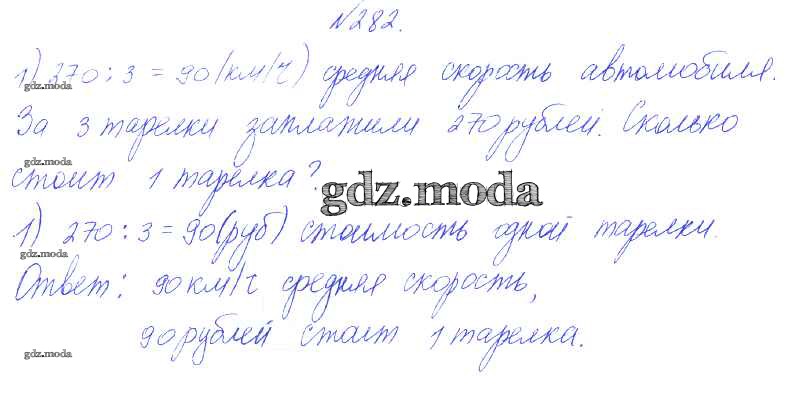 №282.
1) 270 : 3 = 90 (км/ч) средняя скорость автомобиля.
gdz.moda
За 3 тарелки заплатили 270 рублей. Сколько
gdz.moda
стоит 1 тарелка?
gdz.moda
1) 270 : 3 = 90 (руб) стоимость одной тарелки.
gdz.moda
Ответ: 90 км/ч средняя скорость,
90 рублей стоит 1 тарелка.
gdz.moda